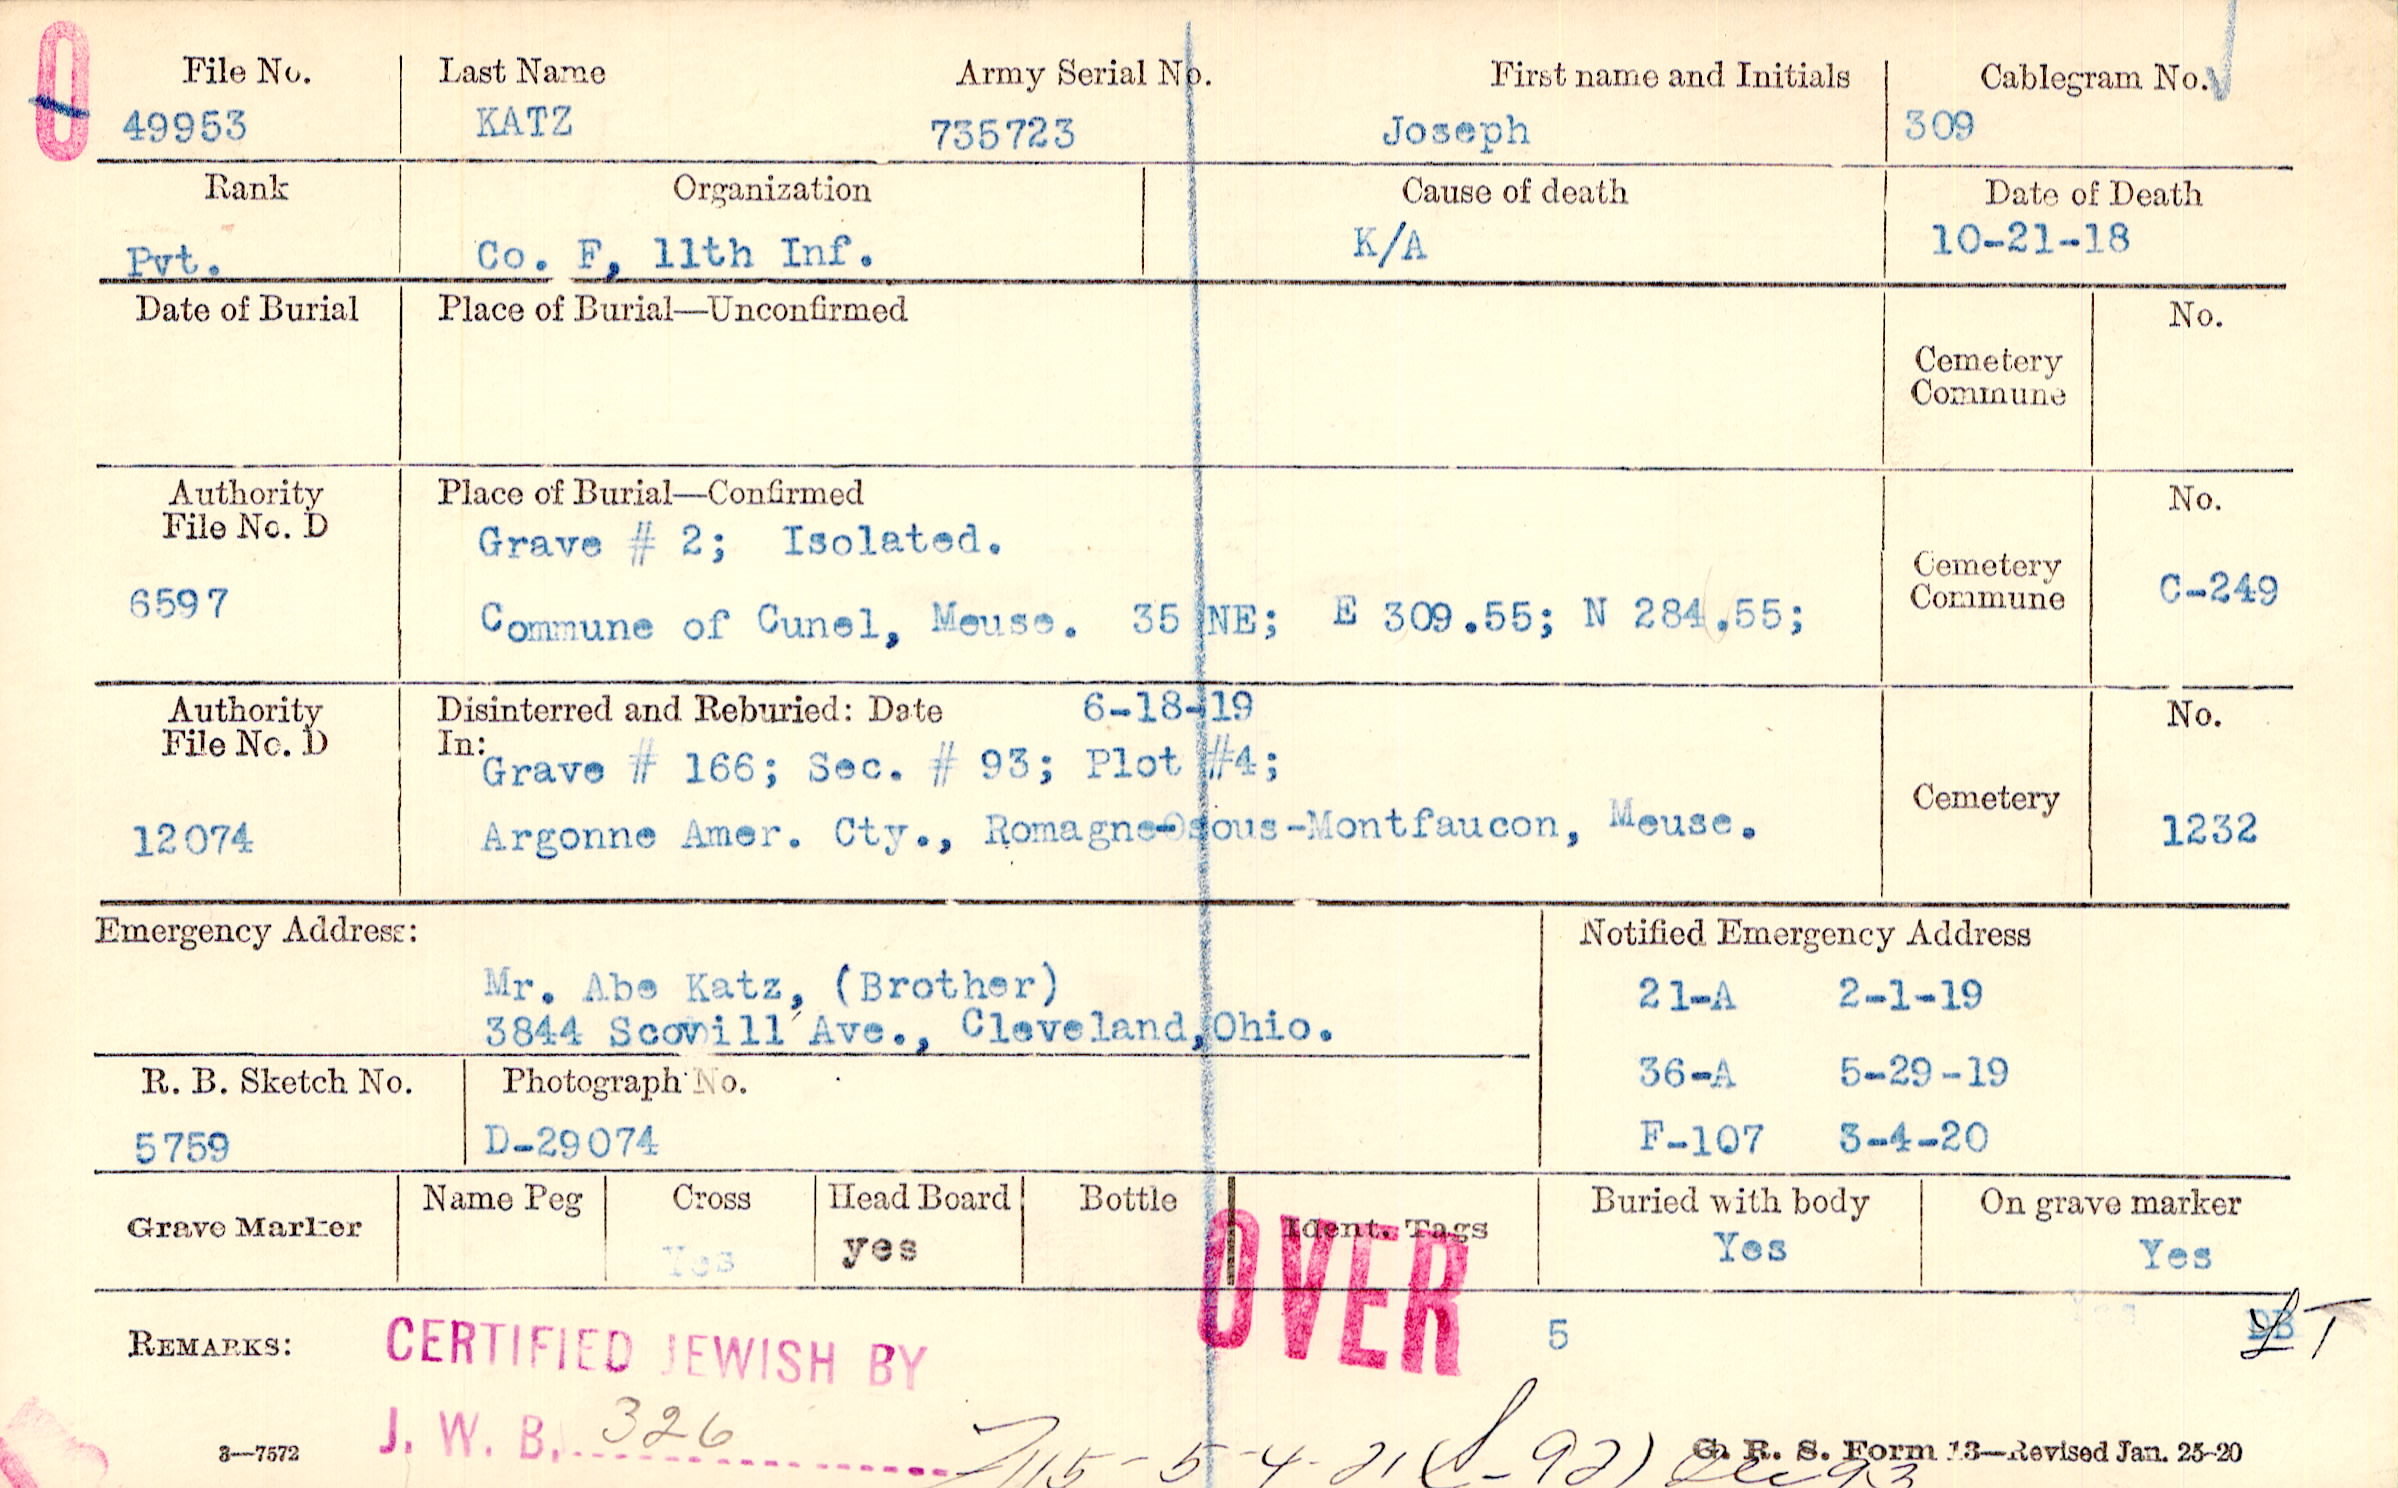 File No. Last Name Army Serial No. First name and Initials Cablegram No.
49953 KATZ 735723 Joseph 309
Rank Organization Cause of death Date of Death
Pvt. Co. F, 11th Inf. K/A 10-21-18
Date of Burial Place of Burial—Unconfirmed No.
Cemetery
Commune
Authority Place of Burial—Confirmed No.
File No. D
Grave # 2; Isolated.
6597 Commune of Cunel, Meuse. 35 NE; E 309.55; N 284.55; Cemetery Commune C-249
Authority Disinterred and Reburied: Date 6-18-19 No.
File No. D In:
Grave # 166; Sec. # 93; Plot #4;
Cemetery
12074 Argonne Amer. Cty., Romagne-sous-Montfaucon, Meuse. 1232
Emergency Address: Notified Emergency Address
Mr. Abe Katz, (Brother) 21-A 2-1-19
3844 Scovill Ave., Cleveland, Ohio.
36-A 5-29-19
R. B. Sketch No. Photograph No.
5759 D-29074 F-107 3-4-20
Grave Marker Name Peg Cross Head Board Bottle Ident. Tags Buried with body On grave marker
Yes yes Yes Yes
OVER
5
REMARKS: CERTIFIED JEWISH BY
J. W. B. 326
3—7572 G. R. S. Form 13—Revised Jan. 25-20